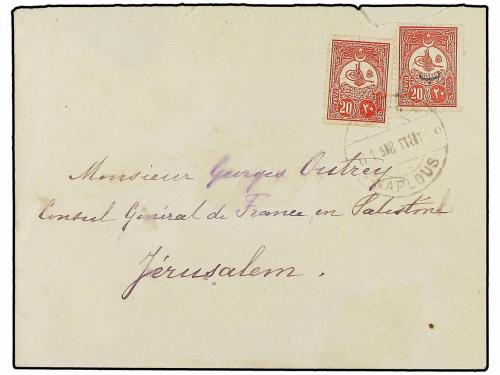 20 ٢٠
20 ٢٠
NAPLOUS
Monsieur Georges Outrey
Consul Général de France en Palestine
Jérusalem.